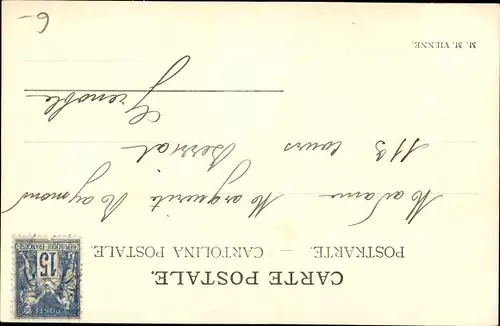 CARTE POSTALE.
POSTKARTE. — CARTOLINA POSTALE.
POSTE
15
REPUBLIQUE FRANÇAISE
Madame
Marguerite Raymond
113 cours Berriat
Grenoble
M. M. VIENNE.
6-